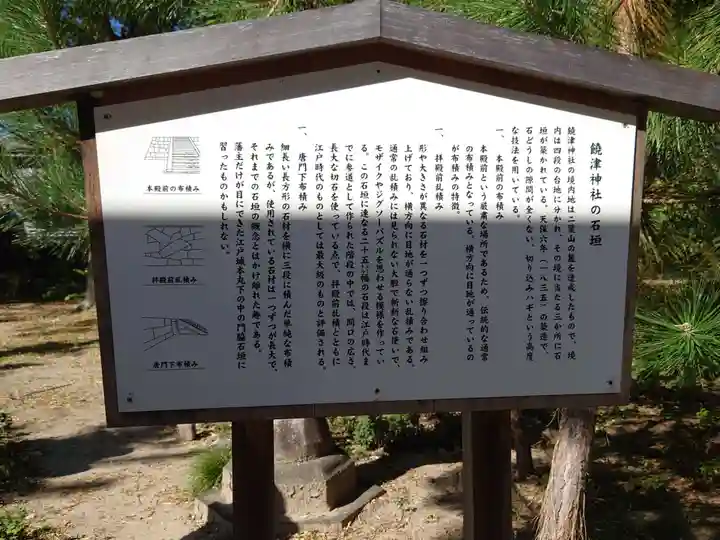 饒津神社の石垣
饒津神社の境内地は二葉山の麓を造成したもので、境
内は四段の台地に分かれ、その境に当たる三か所に石
垣が築かれている。天保六年(一八三五)の築造で、
石どうしの隙間が全くない、切り込みハギという高度
な技法を用いている。
一、本殿前の布積み
本殿前という厳粛な場所であるため、伝統的な通常
の布積みとなっている。横方向に目地が通っているの
が布積みの特徴。
一、拝殿前乱積み
形や大きさが異なる石材を一つずつ擦り合わせ組み
上げており、横方向に目地が通らない乱積みである。
通常の乱積みには見られない大胆で斬新な石使いで、
モザイクやジグソーパズルを思わせる模様を作ってい
る。この石垣に連なる二十五㍍幅の石段は江戸時代ま
でに参道として作られた階段の中では、間口の広さ、
長大な切石を使っている点で、拝殿前乱積とともに
江戸時代のものとしては最大級のものと評価される。
一、唐門下布積み
細長い長方形の石材を横に三段に積んだ単純な布積
みであるが、使用されている石材は一つずつが長大で、
それまでの石垣の概念とはかけ離れた趣である。
藩主だけが目にできた江戸城本丸下の中の門脇石垣に
習ったものかもしれない。
本殿前の布積み
拝殿前乱積み
唐門下布積み